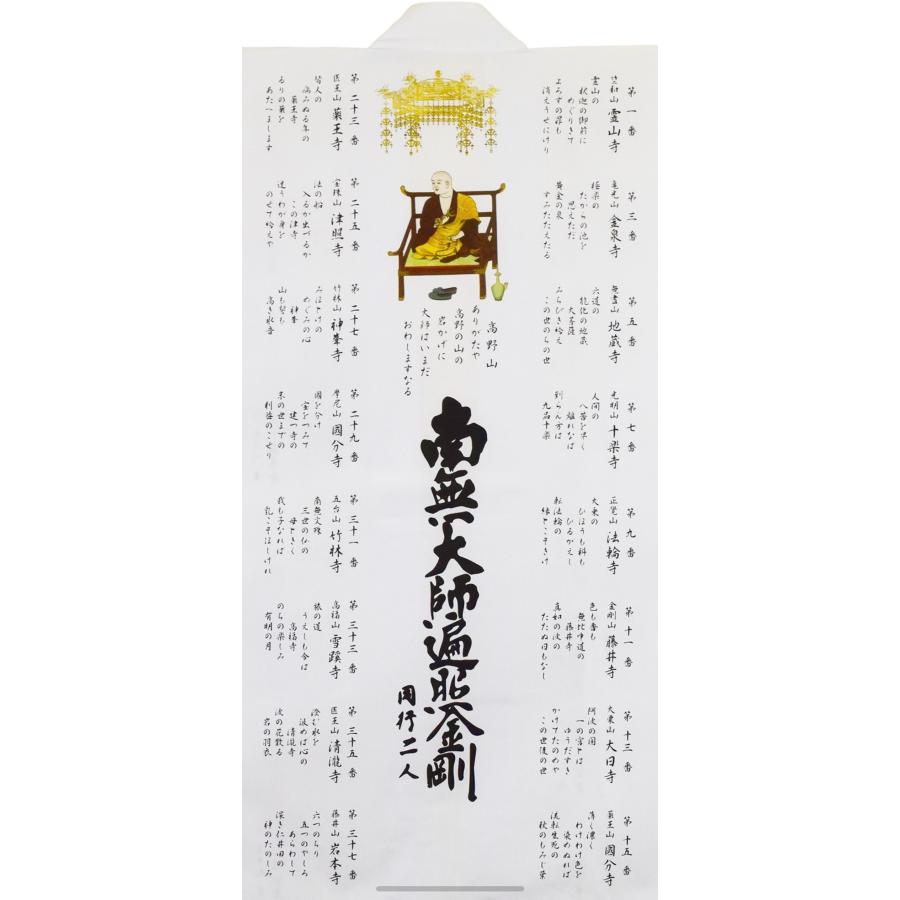 第一番
竺和山 霊山寺
霊山の
釈迦の御前に
めぐりきて
よろずの罪も
消えうせにけり
第三番
亀光山 金泉寺
極楽の
たからの池を
思えただ
黄金の泉
すみたたえたる
第五番
無尽山 地蔵寺
六道の
能化の地蔵
大菩薩
みちびき給え
この世のちの世
第七番
光明山 十楽寺
人間の
八苦を早く
離れなば
到らん方は
九品十楽
第九番
正覚山 法輪寺
大乗の
ひほうも科も
ひるがえし
転法輪の
縁とこそきけ
第十一番
金剛山 藤井寺
色も香も
無比中道の
藤井寺
真如の波の
たたぬ日もなし
第十三番
大栗山 大日寺
阿波の国
一の宮とは
ゆうだすき
かけてたのめや
この世後の世
第十五番
薬王山 國分寺
薄く濃く
わけわけ色を
染めぬれば
流転生死の
秋のもみじ葉
高野山
ありがたや
高野の山の
岩かげに
大師はいまだ
おわしますなる
南無大師遍照金剛
同行二人
第二十三番
医王山 薬王寺
皆人の
病みぬる年の
薬王寺
るりの薬を
あたへまします
第二十五番
宝珠山 津照寺
法の船
入るか出づるか
この津寺
迷うわが身を
のせて給えや
第二十七番
竹林山 神峯寺
みほとけの
めぐみの心
神峯
山も誓も
高き水音
第二十九番
摩尼山 國分寺
國を分け
宝をつみて
建つ寺の
末の世までの
利益のこせり
第三十一番
五台山 竹林寺
南無文殊
三世の仏の
母ときく
我も子なれば
乳こそほしけれ
第三十三番
高福山 雪蹊寺
旅の道
うえしも今は
高福寺
のちの楽しみ
有明の月
第三十五番
医王山 清瀧寺
澄む水を
汲めば心の
清瀧寺
波の花散る
岩の羽衣
第三十七番
藤井山 岩本寺
六つのちり
五つのやしろ
あらわして
深き仁井田の
神のたのしみ